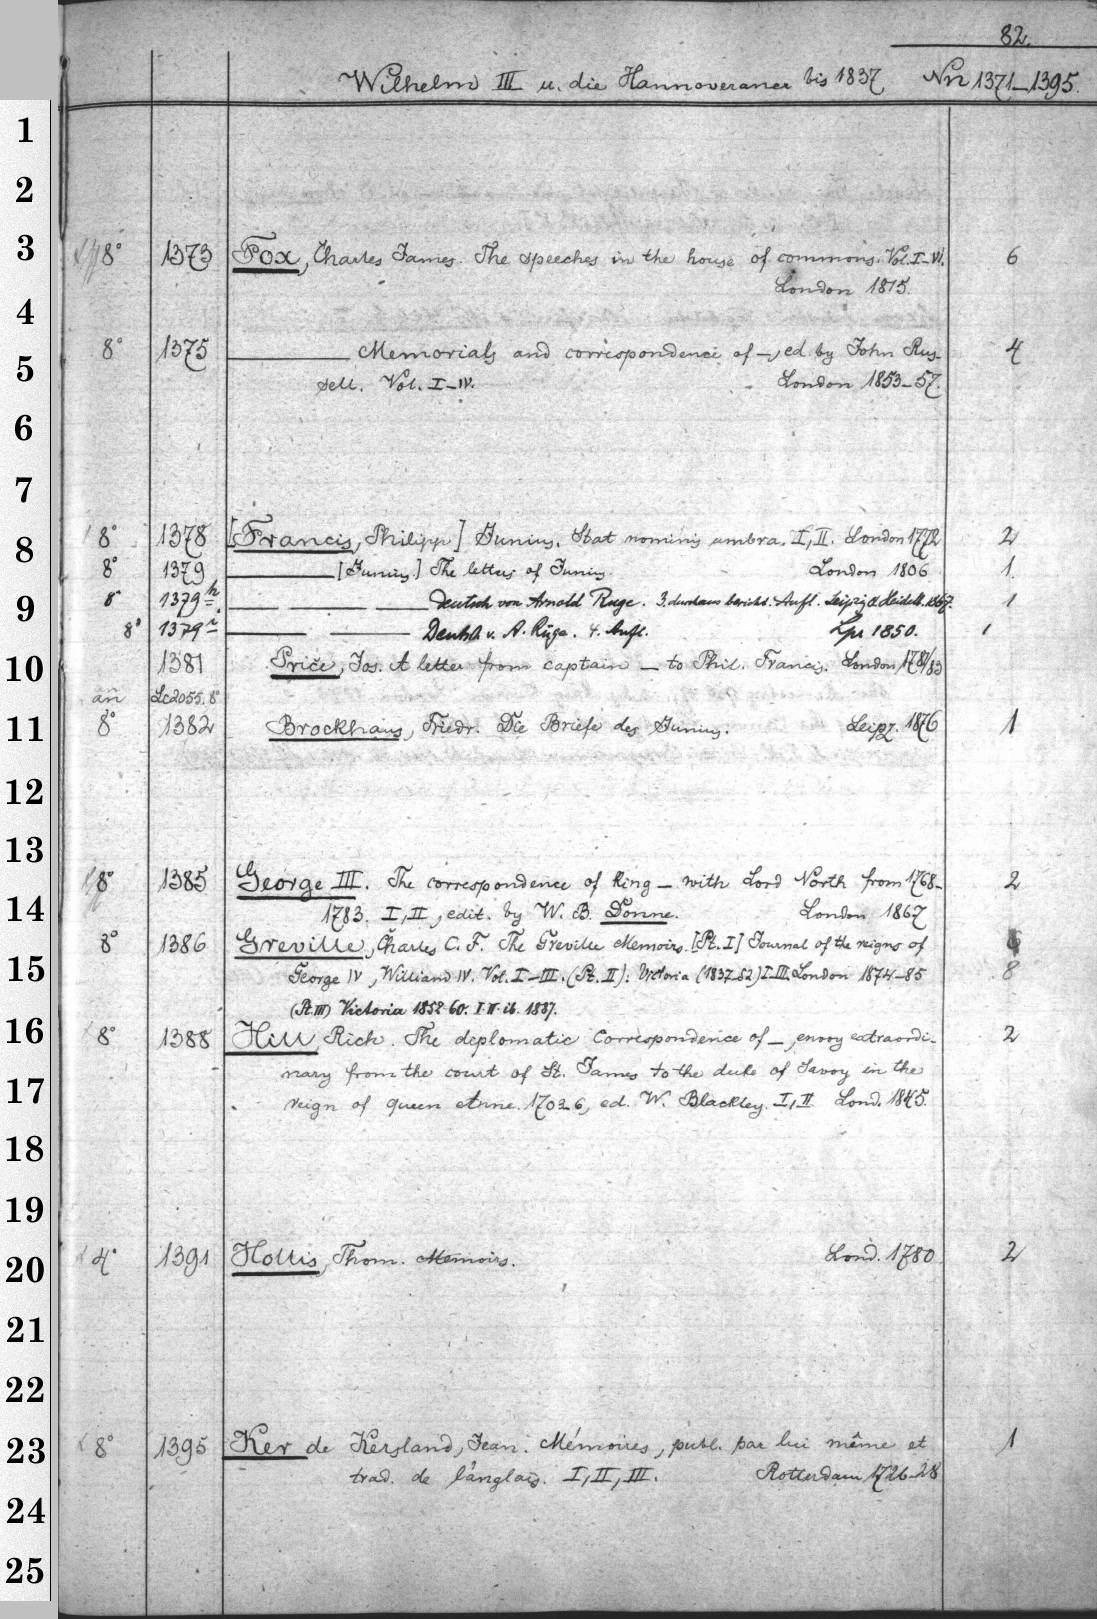 82.
Wilhelm III u. die Hannoveraner bis 1837 Nrr 1371–1395.
1
2
3 8° 1373 Fox, Charles James. The speeches in the house of commons. Vol. I–VI. 6
London 1815.
4
8° 1375 ——— Memorials and correspondence of –, ed. by John Rus- 4
5
sell. Vol. I–IV. London 1853–57.
6
7
8 8° 1378 [Francis, Philipp] Junius. Stat nominis umbra. I, II. London 1772 2
8° 1379 ——— [Junius.] The letters of Junius. London 1806 1.
9 8° 1379h — — — Deutsch von Arnold Ruge. 3. durchaus bericht. Aufl. Leipzig u. Heidelb. 1867. 1
8° 1379i — — Deutsch v. A. Ruge. 4. Aufl. Lpz 1850. 1
10 1381 Price, Jos. A letter from captain – to Phil. Francis. London 1781/83
an Lcd055.8°
11 8° 1382 Brockhaus, Friedr. Die Briefe des Junius. Leipz. 1876 1
12
13
8° 1385 George III. The correspondence of King – with Lord North from 1768– 2
14 1783. I, II, edit. by W. B. Donne. London 1867
8° 1386 Greville, Charles C. F. The Greville Memoirs. [Pt. I] Journal of the reigns of
15 George IV, William IV. Vol. I–III. (Pt. II): Victoria (1837–52) I–III. London 1874–85 8
(Pt. III) Victoria 1852–60. I–II. ib. 1887.
16 8° 1388 Hill, Rich. The deplomatic Correspondence of –, envoy extraordi- 2
nary from the court of St. James to the duke of Savoy in the
17 reign of queen Anne. 1703–6, ed. W. Blackley. I, II Lond. 1845.
18
19
20 4° 1391 Hollis, Thom. Memoirs. Lond. 1780 2
21
22
23 8° 1395 Ker de Kersland, Jean. Mémoires, publ. par lui même et 1
trad. de l'anglais. I, II, III. Rotterdam 1726–28
24
25